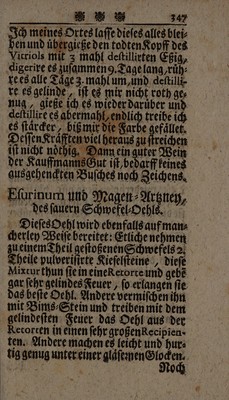 347
Ich meines Ortes lasse dieses alles blei-
ben und übergieße den todten Kopff des
Vitriols mit 3 mahl destillirten Eßig,
digerire es zusammen 9. Tage lang, rüh-
re es alle Tage 3. mahl um, und destilli-
re es gelinde, ist es mir nicht roth ge-
nug, gieße ich es wieder darüber und
destillire es abermahl, endlich treibe ich
es stärcker, biß mir die Farbe gefället.
Dessen Kräfften viel heraus zu streichen
ist nicht nöthig. Dann ein guter Wein
der Kauffmanns Gut ist, bedarff keines
ausgehenckten Busches noch Zeichens.
Esurinum und Magen-Artzney,
des sauern Schwefel-Oehls.
Dieses Oehl wird ebenfalls auf man-
cherley Weise bereitet: Etliche nehmen
zu einem Theil gestossenen Schwefels 2.
Theile pulverisirte Kieselsteine, diese
Mixtur thun sie in eine Retorte und gebē
gar sehr gelindes Feuer, so erlangen sie
das beste Oehl. Andere vermischen ihn
mit Bims-Stein und treiben mit dem
gelindesten Feuer das Oehl aus der
Retorten in einen sehr großen Recipien-
ten. Andere machen es leicht und hur-
tig genug unter einer gläsernen Glocken.
Noch